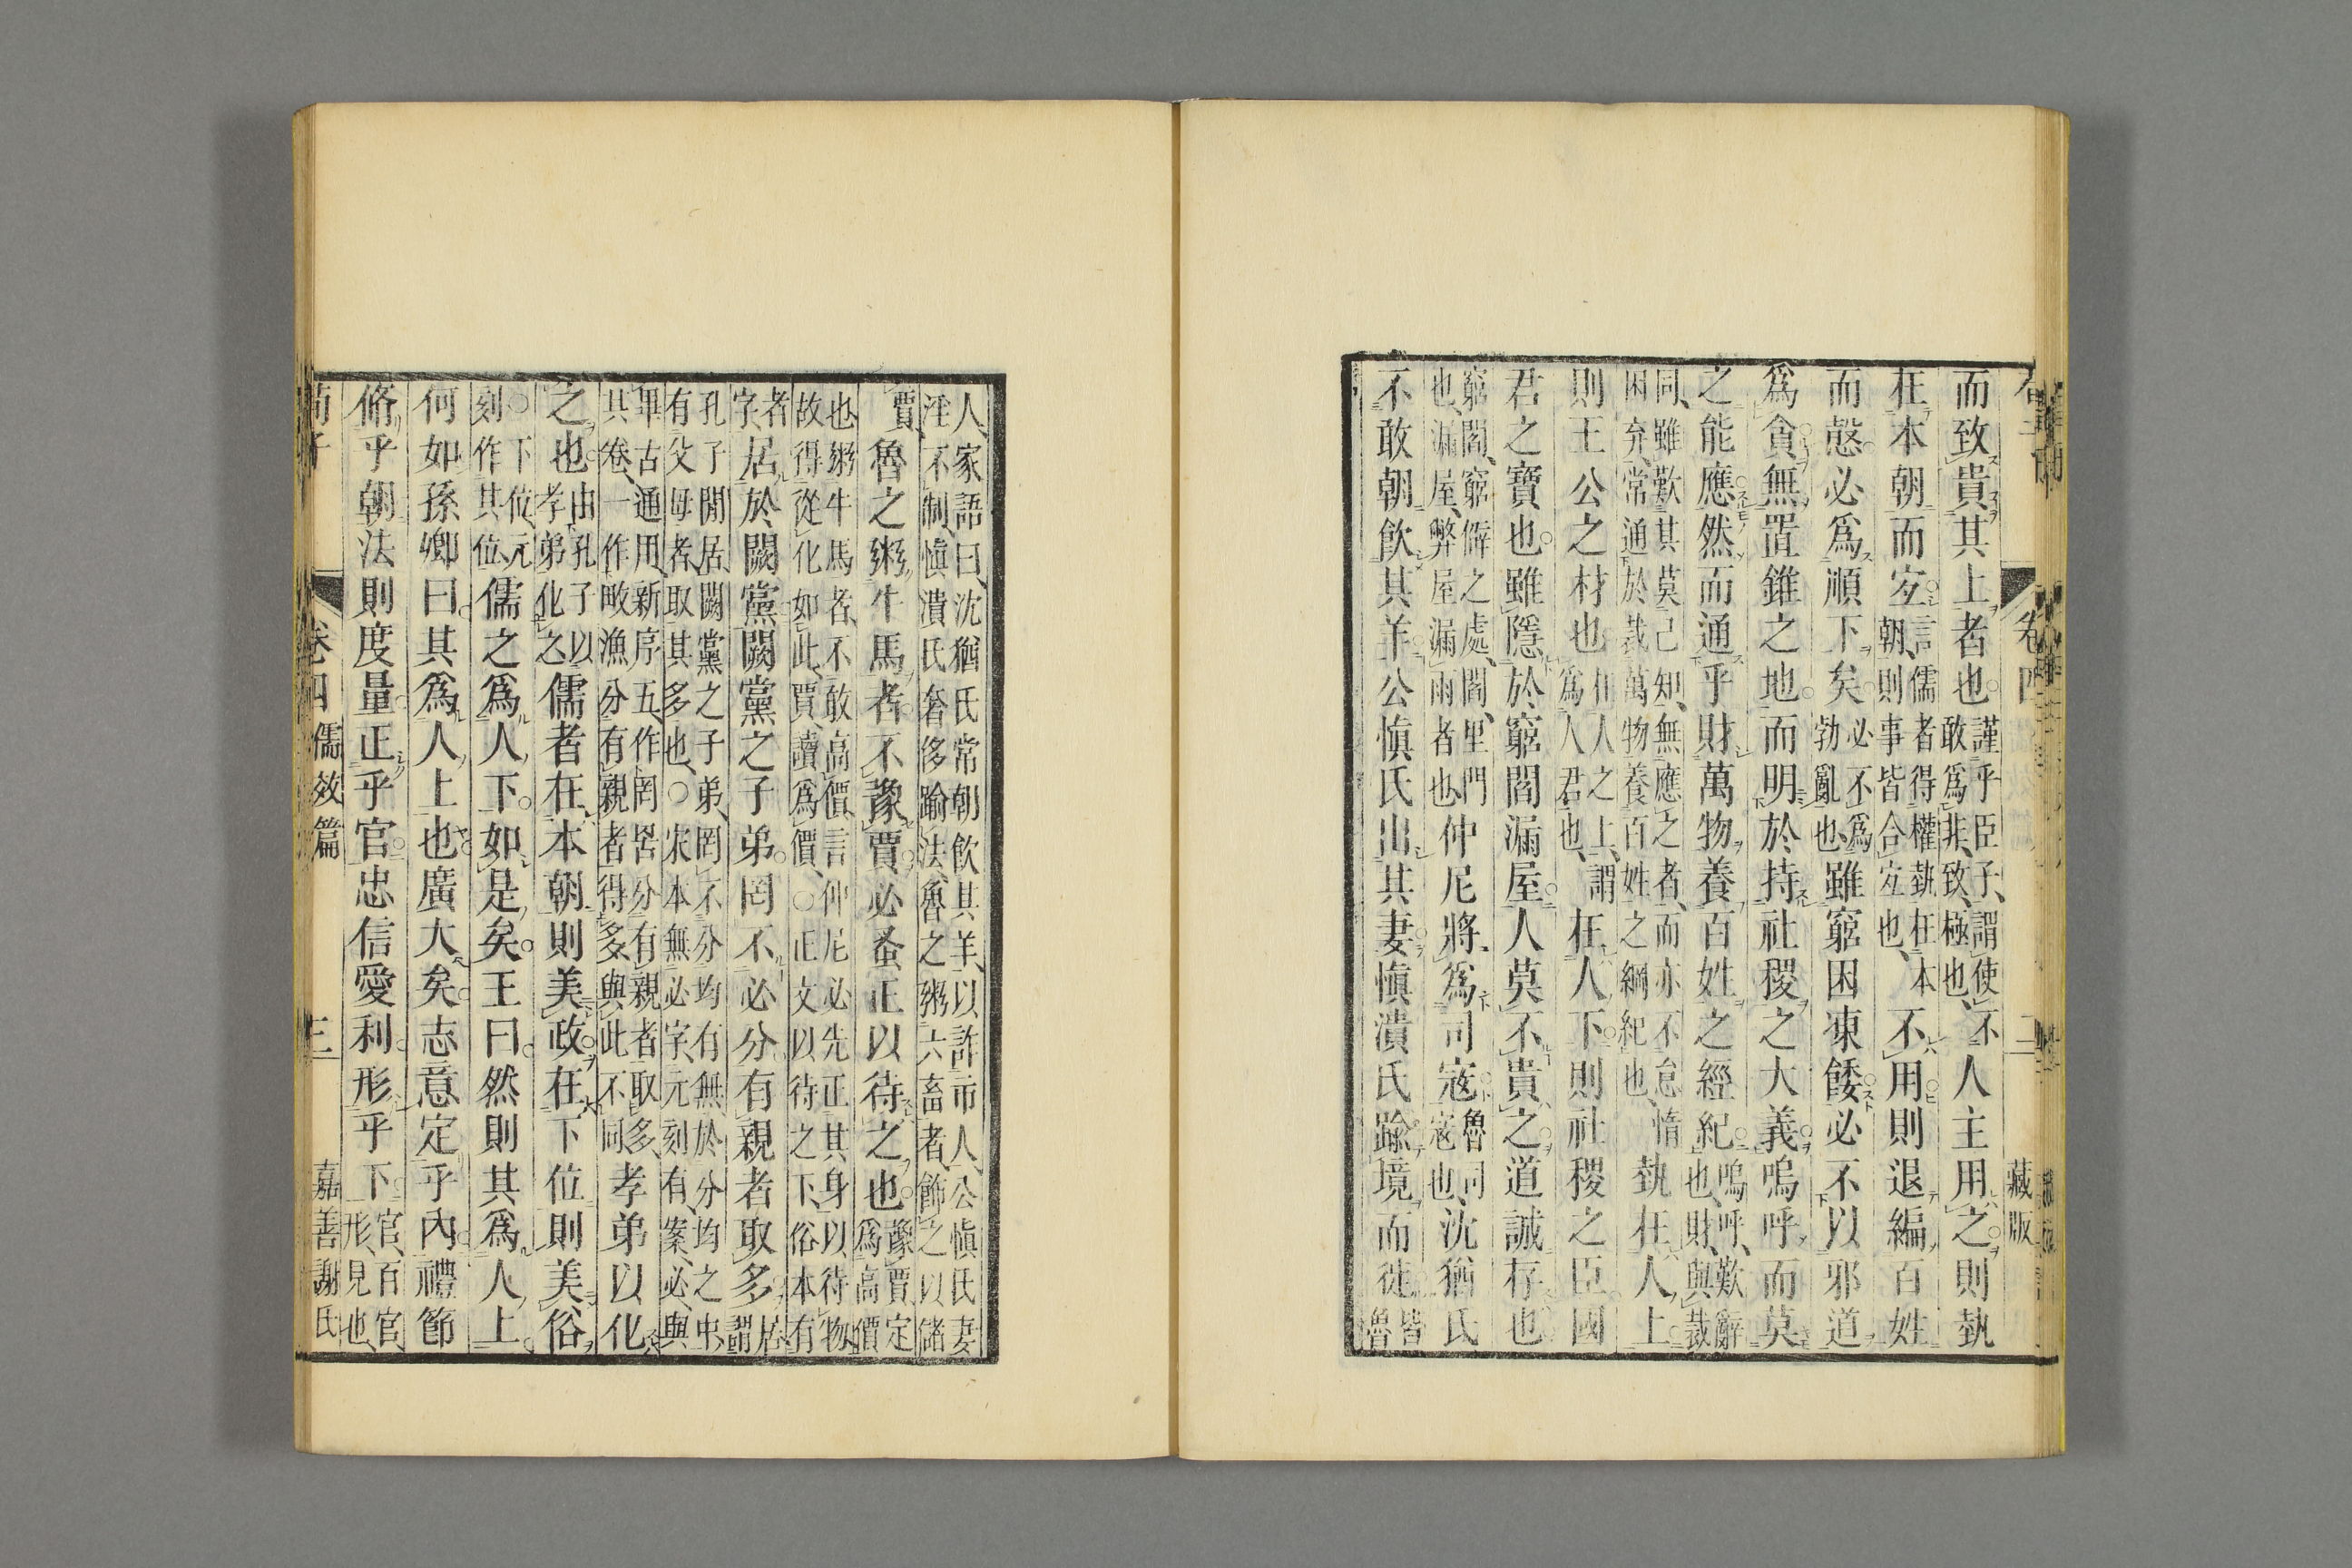 卷四
二
藏版
而致貴其上者也謹乎臣子謂使不敢爲非致極也人主用之則埶
在本朝而宐言儒者得權埶在本朝則事皆合宐也不用則退編百姓
而愨必爲順下矣必不爲勃亂也雖窮困凍餧必不以邪道
爲貪無置錐之地而明於持社稷之大義嗚呼而莫
之能應然而通乎財萬物養百姓之經紀嗚呼歎辭也財與裁
同雖歎其莫己知無應之者而亦不怠惰困弃常通於裁萬物養百姓之綱紀也埶在人上
則王公之材也在人之上謂爲人君也在人下則社稷之臣國
君之寶也雖隱於窮閻漏屋人莫不貴之道誠存也
窮閻窮僻之處閻里門也漏屋弊屋漏雨者也仲尼將爲司寇魯司寇也沈猶氏
不敢朝飮其羊公愼氏出其妻愼潰氏踰境而徙皆魯
人家語曰沈猶氏常朝飮其羊以詐市人公愼氏妻淫不制愼潰氏奢侈踰法魯之粥六畜者飾之以儲
賈魯之粥牛馬者不豫賈必蚤正以待之也豫賈定爲高價
也粥牛馬者不敢高價言仲尼必先正其身以待物故得從化如此賈讀爲價○正文以待之下俗本有
者字居於闕黨闕黨之子弟罔不必分有親者取多居謂
孔子閒居闕黨之子弟罔不分均有無於分均之中有父母者取其多也○宋本無必字元刻有案必與
畢古通用新序五作罔罟分有親者取多其卷一作畋漁分有親者得多與此不同孝弟以化
之也由孔子以孝弟化之儒者在本朝則美政在下位則美俗
○下位元刻作其位儒之爲人下如是矣王曰然則其爲人上
何如孫卿曰其爲人上也廣大矣志意定乎內禮節
脩乎朝法則度量正乎官忠信愛利形乎下官百官形見也
荀子
卷四儒效篇
三
嘉善謝氏